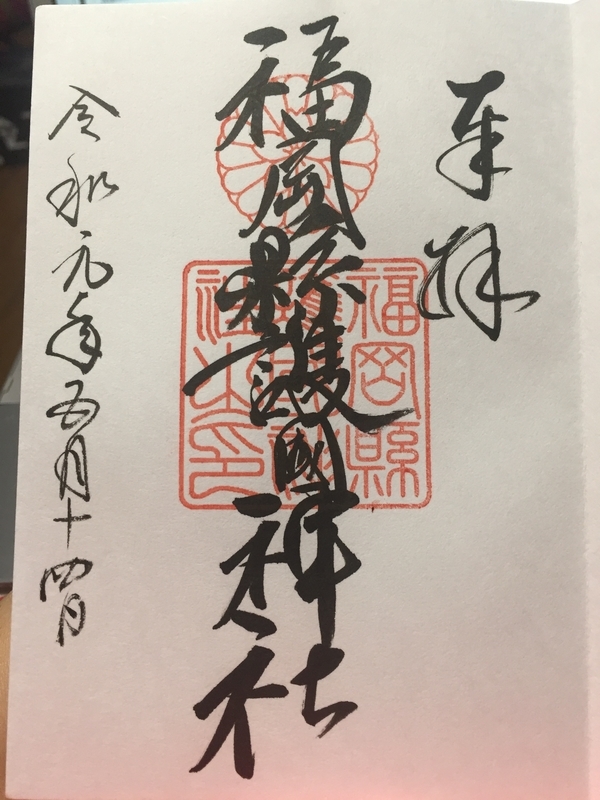 奉拝
福岡縣護國神社
福岡縣護國神社之印
令和元年五月十四日